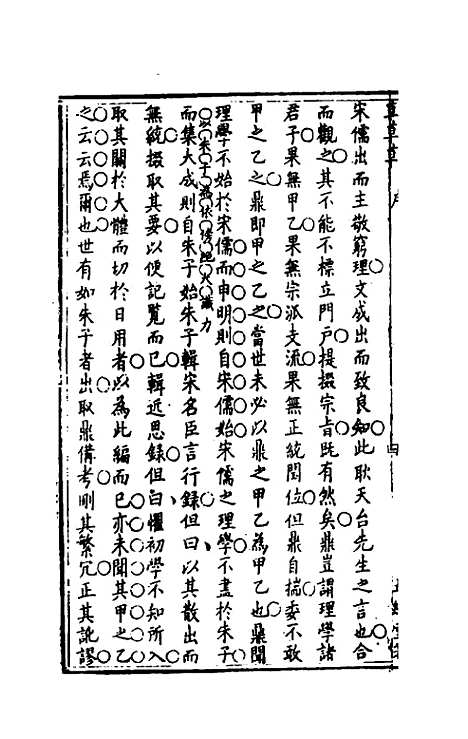 宋儒出而主敬窮理文成出而致良知此耿天台先生之言也合
而觀之其不能不標立門戶提掇宗旨旣有然矣鼎豈謂理學諸
君子果無甲乙果無宗派支流果無正統閏位但鼎自揣委不敢
甲之乙之鼎卽甲之乙之當世未必以鼎之甲乙為甲乙也鼎聞
理學不始於宋儒而申明則自宋儒始宋儒之理學不盡於朱子
而集大成則自朱子始朱子輯宋名臣言行錄但曰以其散出而
無統掇取其要以便記覽而已輯近思錄但曰懼初學不知所入
取其關於大體而切於日用者以為此編而已亦未聞其甲之乙
之云云焉爾也世有如朱子者出取鼎備考刪其繁冗正其訛謬